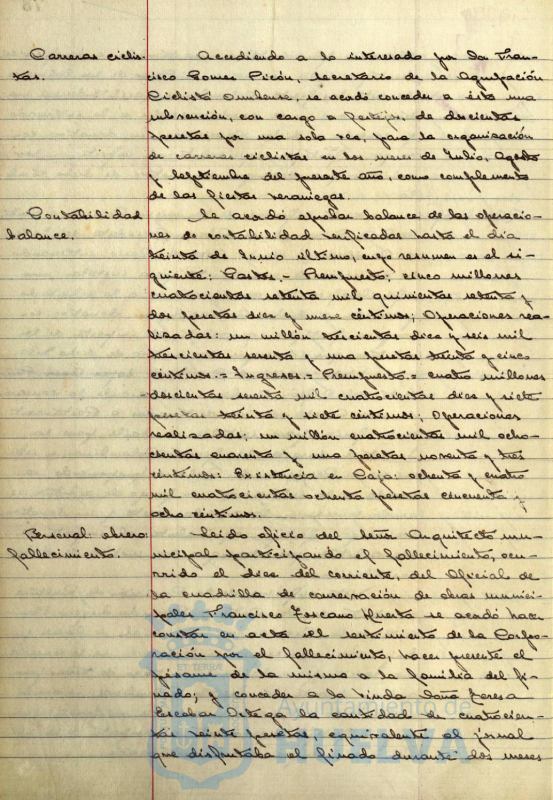 Carreras ciclis-
tas.
Accediendo a lo interesado por Don Fran-
cisco Gomez Picón, secretario de la Agrupación
Ciclista Onubense, se acordó conceder a ésta una
subvención, con cargo a festejos, de doscientas
pesetas por una sola vez, para la organización
de carreras ciclistas en los meses de Julio, Agosto
y Septiembre del presente año, como complemento
de las fiestas veraniegas.
Contabilidad
balance.
Se acordó aprobar balance de las operacio-
nes de contabilidad verificadas hasta el dia
treinta de Junio último, cuyo resumen es el si-
guiente: Gastos.- Presupuesto; cinco millones
cuatrocientas setenta mil quinientas setenta y
dos pesetas diez y nueve céntimos; Operaciones rea-
lizadas: un millón trescientas diez y seis mil
trescientas sesenta y una pesetas treinta y cinco
céntimos.= Ingresos.= Presupuesto.= cuatro millones
doscientas sesenta mil cuatrocientas diez y siete
pesetas treinta y siete céntimos; Operaciones
realizadas; un millón cuatrocientas mil ocho-
cientas cuarenta y una pesetas noventa y tres
céntimos: Existencia en Caja: ochenta y cuatro
mil cuatrocientas ochenta pesetas cincuenta y
ocho céntimos.
Personal obrero:
fallecimiento.
Leido oficio del Señor Arquitecto mu-
nicipal participando el fallecimiento, ocu-
rrido el diez del corriente, del Oficial de
la cuadrilla de conservación de obras munici-
pales Francisco Toscano Huerta se acordó hacer
constar en acta el sentimiento de la Corpo-
ración por el fallecimiento, hacer presente el
pésame de la misma a la familia del fi-
nado; y conceder a la viuda Doña Teresa
Escobar Ortega la cantidad de cuatrocien-
tas veinte pesetas, equivalente al jornal
que disfrutaba el finado durante dos meses
Ayuntamiento de
HUELVA